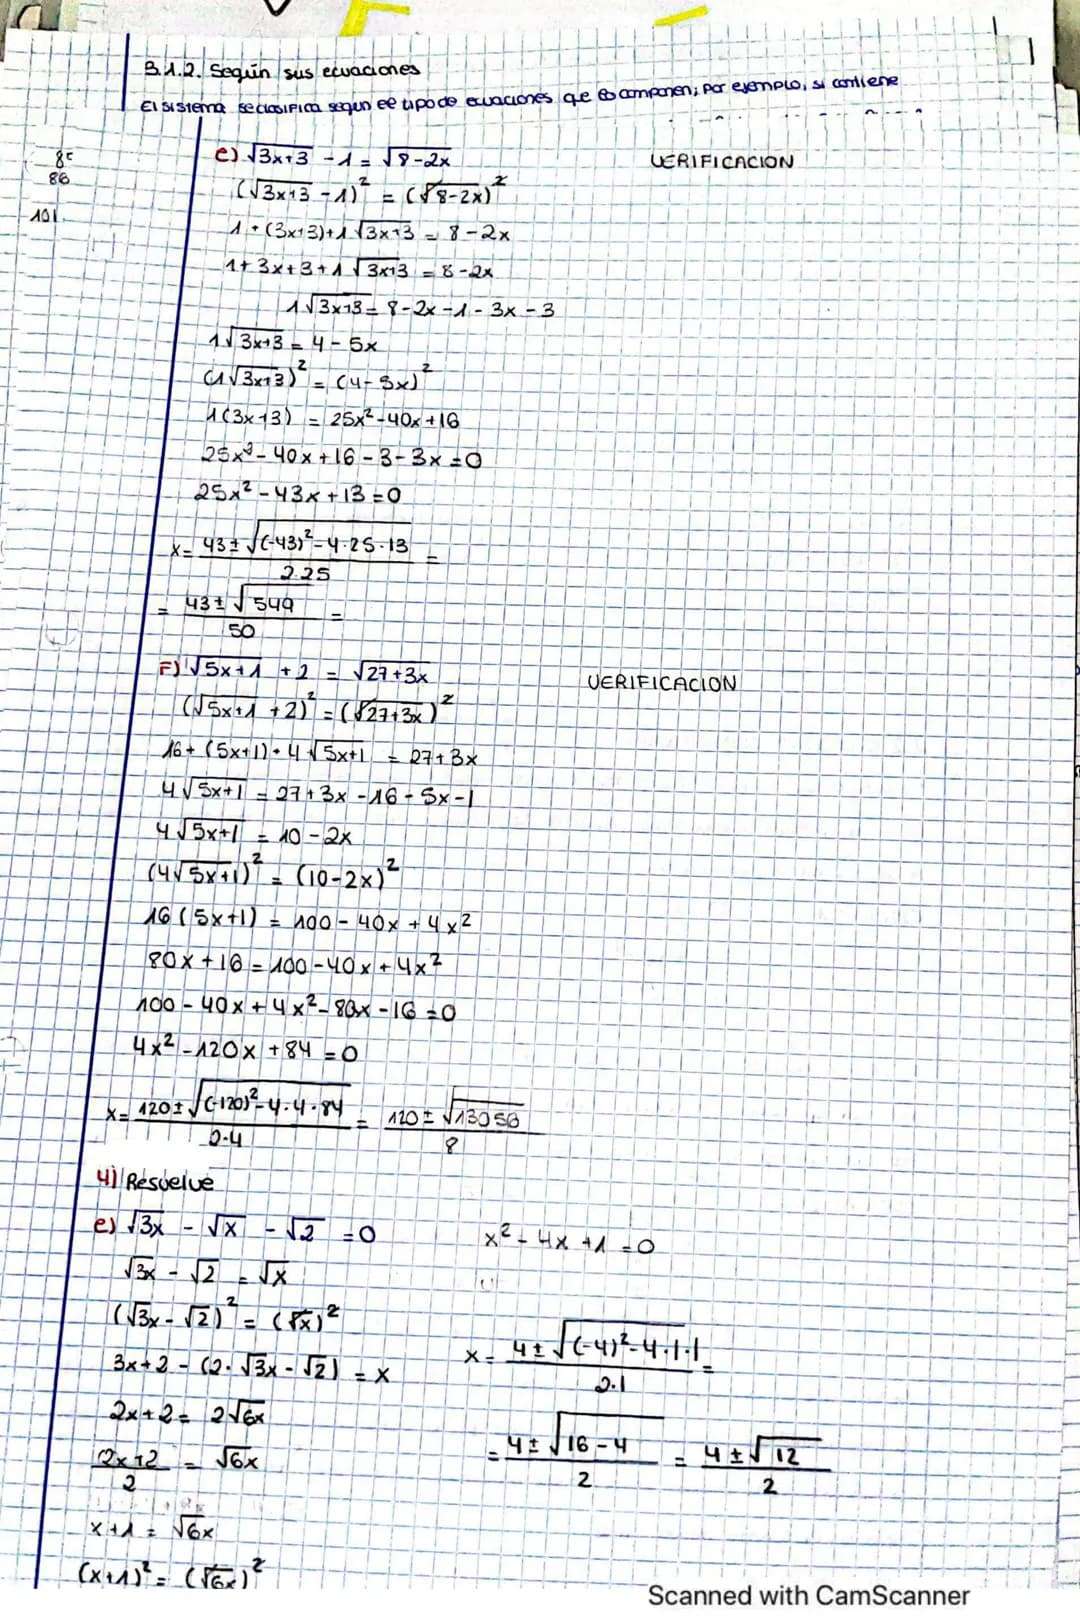 3.1.2. Según sus ecuaciones
El sistema se clasifica según el tipo de ecuaciones que lo componen; por ejemplo, si contiene
8c
86
101
e) √3x+3 - 1 = √8-2x
VERIFICACION
(√3x+3 - 1)² = (√8-2x)²
1 + (3x+3)+1 √3x+3 = 8-2x
1+3x+3+1 √3x+3 = 8-2x
1√3x+3 = 8-2x-1-3x-3
1√3x+3 = 4-5x
(1√3x+3)² = (4-5x)²
1(3x+3) = 25x²-40x+16
25x²-40x+16-3-3x=0
25x²-43x+13=0
x= 43±√(-43)²-4·25·13 / 2·25 =
= 43±√549 / 50 =
F) √5x+1 + 2 = √27+3x
VERIFICACION
(√5x+1 +2)² = (√27+3x)²
16+(5x+1)+4√5x+1 = 27+3x
4√5x+1 = 27+3x-16-5x-1
4√5x+1 = 10-2x
(4√5x+1)² = (10-2x)²
16(5x+1) = 100-40x+4x²
80x+16=100-40x+4x²
100-40x+4x²-80x-16=0
4x²-120x+84=0
x= 120±√(-120)²-4·4·84 / 2·4 = 120±√13056 / 8
4) Resuelve
e) √3x - √x - √2 = 0
√3x - √2 = √x
(√3x - √2)² = (√x)²
3x+2-(2·√3x-√2) = x
2x+2 = 2√6x
2x+2 / 2 = √6x
x+1 = √6x
(x+1)² = (√6x)²
x²-4x+1=0
x= 4±√(-4)²-4·1·1 / 2·1 =
= 4±√16-4 / 2 = 4±√12 / 2
Scanned with CamScanner